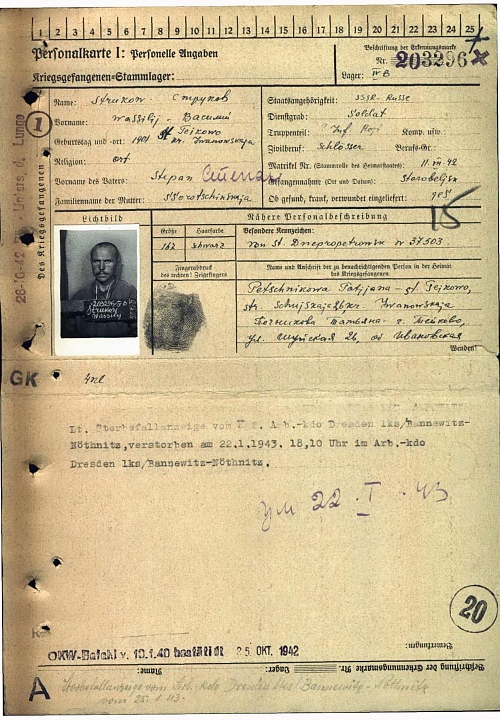 1 2 3 4 5 6 7 8 9 10 11 12 13 14 15 16 17 18 19 20 21 22 23 24 25
Personalkarte I: Personelle Angaben
Kriegsgefangenen-Stammlager:
Beschriftung der Erkennungsmarke
Nr. 203296
Lager: IVB
Des Kriegsgefangenen
26-10-42 Unters. d. Lunge
1
Name: Strukow Струков
Vorname: Wassilij - Василий
Geburtstag und -ort: 1901 st Tejkowo
kr. Iwanowskaja
Religion: ort
Vorname des Vaters: Stepan Степан
Familienname der Mutter:
Staatsangehörigkeit: SSSR-Russe
Dienstgrad: Soldat
Truppenteil: Inf Komp. usw.:
Zivilberuf: Schlosser Berufs-Gr.
Matrikel Nr. (Stammrolle des Heimatstaates): 11.VII.42
Gefangennahme (Ort und Datum): Starobeljsk
Ob gesund, krank, verwundet eingeliefert: ges
15
Lichtbild
Nähere Personalbeschreibung
Größe Haarfarbe Besondere Kennzeichen:
162 schwarz von st. Dnepropetrowsk nr 37503
Fingerabdruck
des rechten! Zeigefingers
Name und Anschrift der zu benachrichtigenden Person in der Heimat
des Kriegsgefangenen
Petschnikowa Tatjjana - st Tejkowo,
str. Schujskaja 26 kr Iwanowskaja
Печникова Татьяна - г. Тейково,
ул. Шуйская 26, об Ивановская
Wenden!
203296 IVB
Strukow
Wassilij
GK
Lt. Sterbefallanzeige vom Arb.-kdo Dresden lks/Bannewitz-
Nöthnitz,verstorben am 22.1.1943. 18,10 Uhr im Arb.-kdo
Dresden lks/Bannewitz-Nöthnitz.
ум 22 I - 43
20
Bemerkungen:
OKW-Befehl v. 10.1.40 bestätigt 25. OKT. 1942
Beschriftung der Erkennungsmarke Nr. Lager: Name:
A
Sterbefallanzeige vom Arb. kdo Dresden lks/Bannewitz-Nöthnitz
vom 25.1.43.